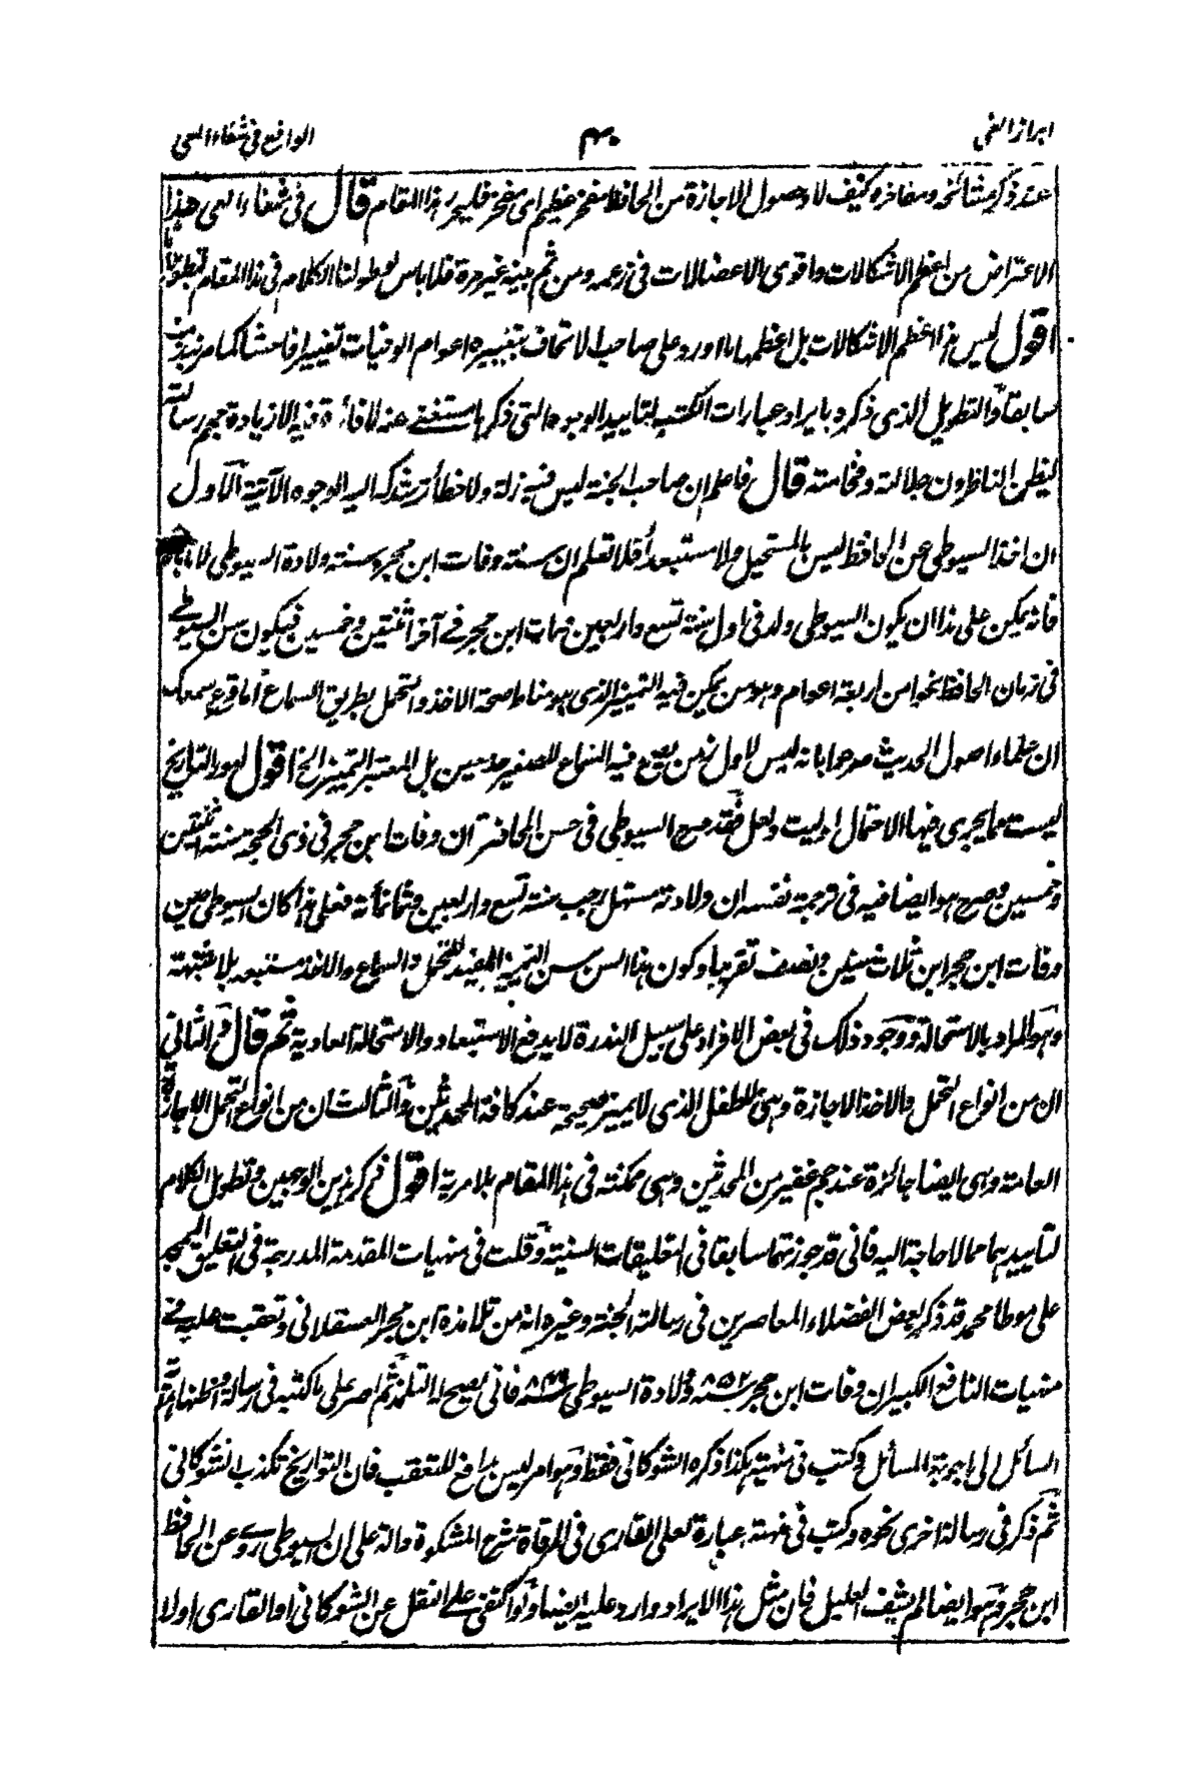 ابراز الغي
٤٠
الواقع في شفاء العي
عند ذكر مشائخه ومفاخره كيف لا وحصول الاجازة من الحافظ مفخر عظيم اي مفخر فليحرر هذا المقام قال في شفاء العي هذا
الاعتراض من اعظم الاشكالات واقوى الاعضالات في زعمه ومن ثم بينه غير مرة فلا باس لو طولنا الكلام في هذا المقام تطويلا
اقول ليس هذا اعظم الاشكالات بل اعظمها ما اورد على صاحب الاتحاف بتغييره اعوام الوفيات تغييرا فاحشا كما مر نبذ من
سابقا والتطويل الذي ذكره بايراد عبارات الكتب لتاييد الوجوه التي ذكرها مستغنى عنه لا فائدة فيه الا زيادة حجم رسالته
ليظن الناظرون جلالته وفخامته قال فاعلم ان صاحب الجنة ليس فيه زلة ولا خطأ ترشدك اليه الوجوه الآتية الاول
ان اخذ السيوطي عن الحافظ ليس بالمستحيل ولا مستبعد أفلا تعلم ان سنة وفات ابن حجر وسنة ولادة السيوطي لا ياباه
فانه يمكن على هذا ان يكون السيوطي ولد في اول سنة تسع واربعين ومات ابن حجر في آخر اثنتين وخمسين فيكون سن السيوطي
في زمان الحافظ نحوا من اربعة اعوام وهو سن يمكن فيه التمييز الذي هو مناط صحة الاخذ والتحمل بطريق السماع أما قرع سمعك
ان علماء اصول الحديث صرحوا بانه ليس لاول زمن يصح فيه السماع للصغير حد معين بل المعتبر التمييز الخ اقول امور التاريخ
ليست مما يجري فيها الاحتمال وليت ولعل فقد صرح السيوطي في حسن المحاضرة ان وفات ابن حجر في ذي الحجة سنة اثنتين
وخمسين وصرح هو ايضا فيه في ترجمة نفسه ان ولادته مستهل رجب سنة تسع واربعين وثمانمائة فعلى هذا كان السيوطي حين
وفات ابن حجر ابن ثلاث سنين ونصف تقريبا وكون هذا السن سن التمييز المفيد للتحمل والسماع والاخذ مستبعد بلا شبهة
وهو المراد بالاستحالة ووجود ذلك في بعض الافراد على سبيل الندرة لا يدفع الاستبعاد والاستحالة العادية ثم قال والثاني
ان من انواع التحمل والاخذ الاجازة وهي للطفل الذي لا يميز صحيحة عند كافة المحدثين والثالث ان من انواع التحمل الاجازة
العامة وهي ايضا جائزة عند جم غفير من المحدثين وهي ممكنة في هذا المقام بلا مرية اقول ذكر هذين الوجهين وتطويل الكلام
لتاييدهما مما لا حاجة اليه فاني قد جوزتهما سابقا في التعليقات السنية وقلت في منهيات المقدمة المدرجة في التعليق الممجد
على موطا محمد قد ذكر بعض الفضلاء المعاصرين في رسالته الجنة وغيره انه من تلامذة ابن حجر العسقلاني وتعقبت عليه في
منهيات النافع الكبير ان وفات ابن حجر سنة ٨٥٢ وولادة السيوطي سنة ٨٤٩ فانى يصح له التلمذ ثم اصر على ما كتبه في رسالة
السائل الى اجوبة المسائل وكتب في منهية هكذا ذكره الشوكاني فقط وهو امر ليس بدافع للتعقب فان التواريخ تكذب الشوكاني
ثم ذكر في رسالة اخرى نحوه وكتب في منهية عبارة لعلي القاري في المرقاة شرح المشكوة دالة على ان السيوطي روى عن الحافظ
ابن حجر وهو ايضا لم يشف العليل فان مثل هذا الايراد وارد عليه ايضا ولو اكتفى على النقل عن الشوكاني او القاري اولا